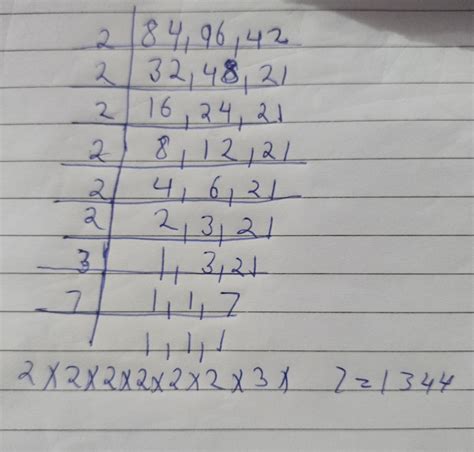 2 | 84, 96, 42
2 | 32, 48, 21
2 | 16, 24, 21
2 | 8, 12, 21
2 | 4, 6, 21
2 | 2, 3, 21
3 | 1, 3, 21
7 | 1, 1, 7
1, 1, 1
2 × 2 × 2 × 2 × 2 × 2 × 3 × 7 = 1344